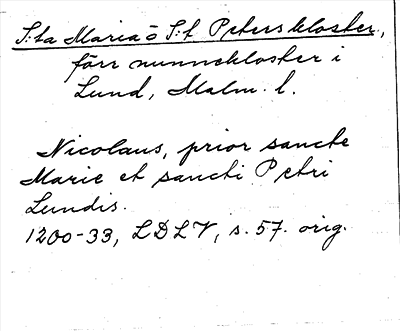 S:ta Maria o S:t Peters kloster,
förr nunnekloster i
Lund, Malm. l.
Nicolaus, prior sancte
Marie et sancti Petri
Lundis.
1200-33, LDLV, s. 57. orig.